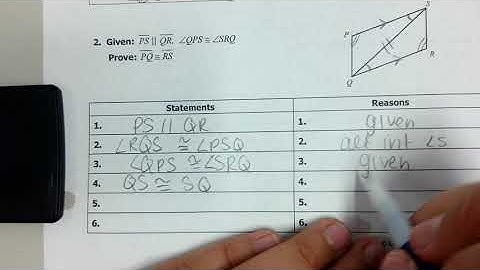 2. Given: PS || QR, ∠QPS ≅ ∠SRQ
Prove: PQ ≅ RS
S
P
R
Q
Statements Reasons
1. PS || QR 1. given
2. ∠RQS ≅ ∠PSQ 2. alt int ∠s
3. ∠QPS ≅ ∠SRQ 3. given
4. QS ≅ SQ 4.
5. 5.
6. 6.